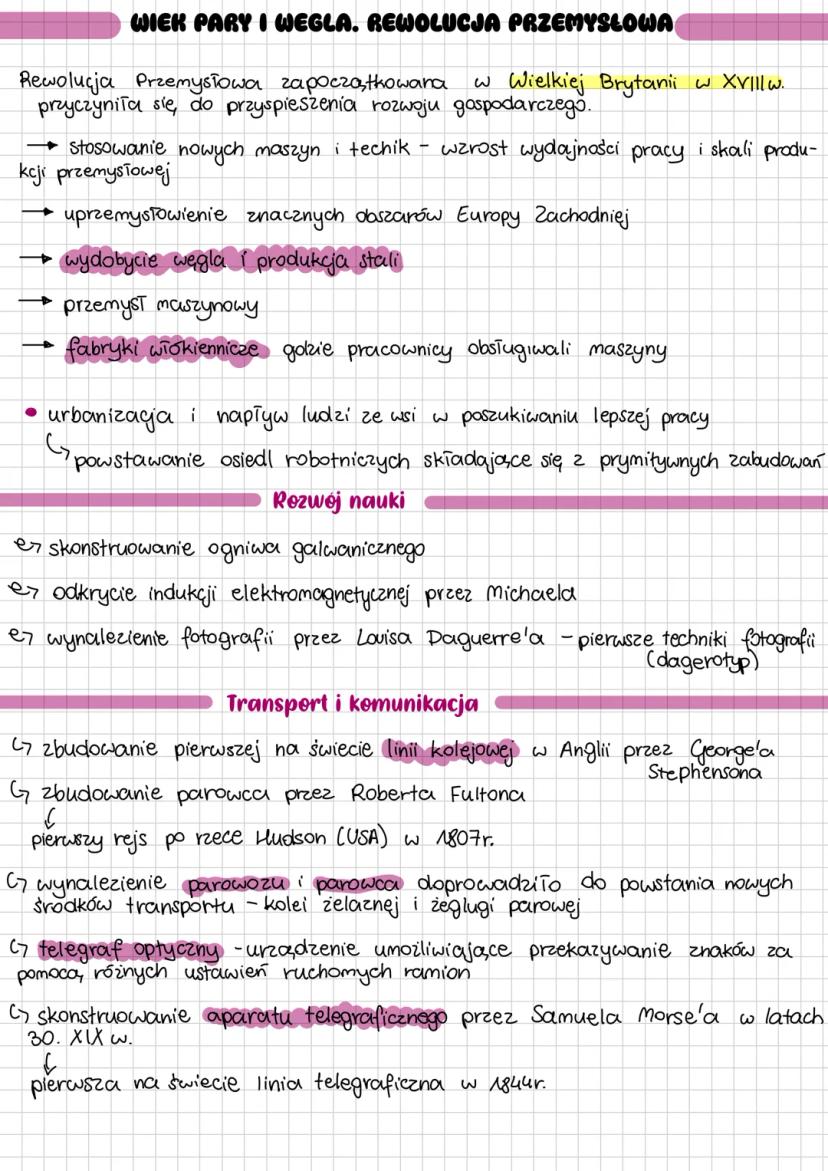 WIEK PARY I WEGLA. REWOLUCJA PRZEMYSŁOWA
Rewolucja Przemysłowa zapoczątkowana w Wielkiej Brytanii w XVIII w.
przyczyniła się do przyspieszenia rozwoju gospodarczego.
→ stosowanie nowych maszyn i techik - wzrost wydajności pracy i skali produ-
kcji przemysłowej
→ uprzemysłowienie znacznych obszarów Europy Zachodniej
→ wydobycie węgla i produkcja stali
→ przemysł maszynowy
→ fabryki włókiennicze gdzie pracownicy obsługiwali maszyny
• urbanizacja i napływ ludzi ze wsi w poszukiwaniu lepszej pracy
↳ powstawanie osiedl robotniczych składające się z prymitywnych zabudowań
Rozwój nauki
skonstruowanie ogniwa galwanicznego
odkrycie indukcji elektromagnetycznej przez Michaela
wynalezienie fotografii przez Louisa Daguerre'a - pierwsze techniki fotografii
(dagerotyp)
Transport i komunikacja
↳ zbudowanie pierwszej na świecie linii kolejowej w Anglii przez George'a
Stephensona
↳ zbudowanie parowca przez Roberta Fultona
pierwszy rejs po rzece Hudson (USA) w 1807r.
↳ wynalezienie parowozu i parowca doprowadziło do powstania nowych
środków transportu - kolei żelaznej i żeglugi parowej
↳ telegraf optyczny - urządzenie umożliwiające przekazywanie znaków za
pomocą różnych ustawień ruchomych ramion
↳ skonstruowanie aparatu telegraficznego przez Samuela Morse'a w latach
30. XIX w.
pierwsza na świecie linia telegraficzna w 1844r.